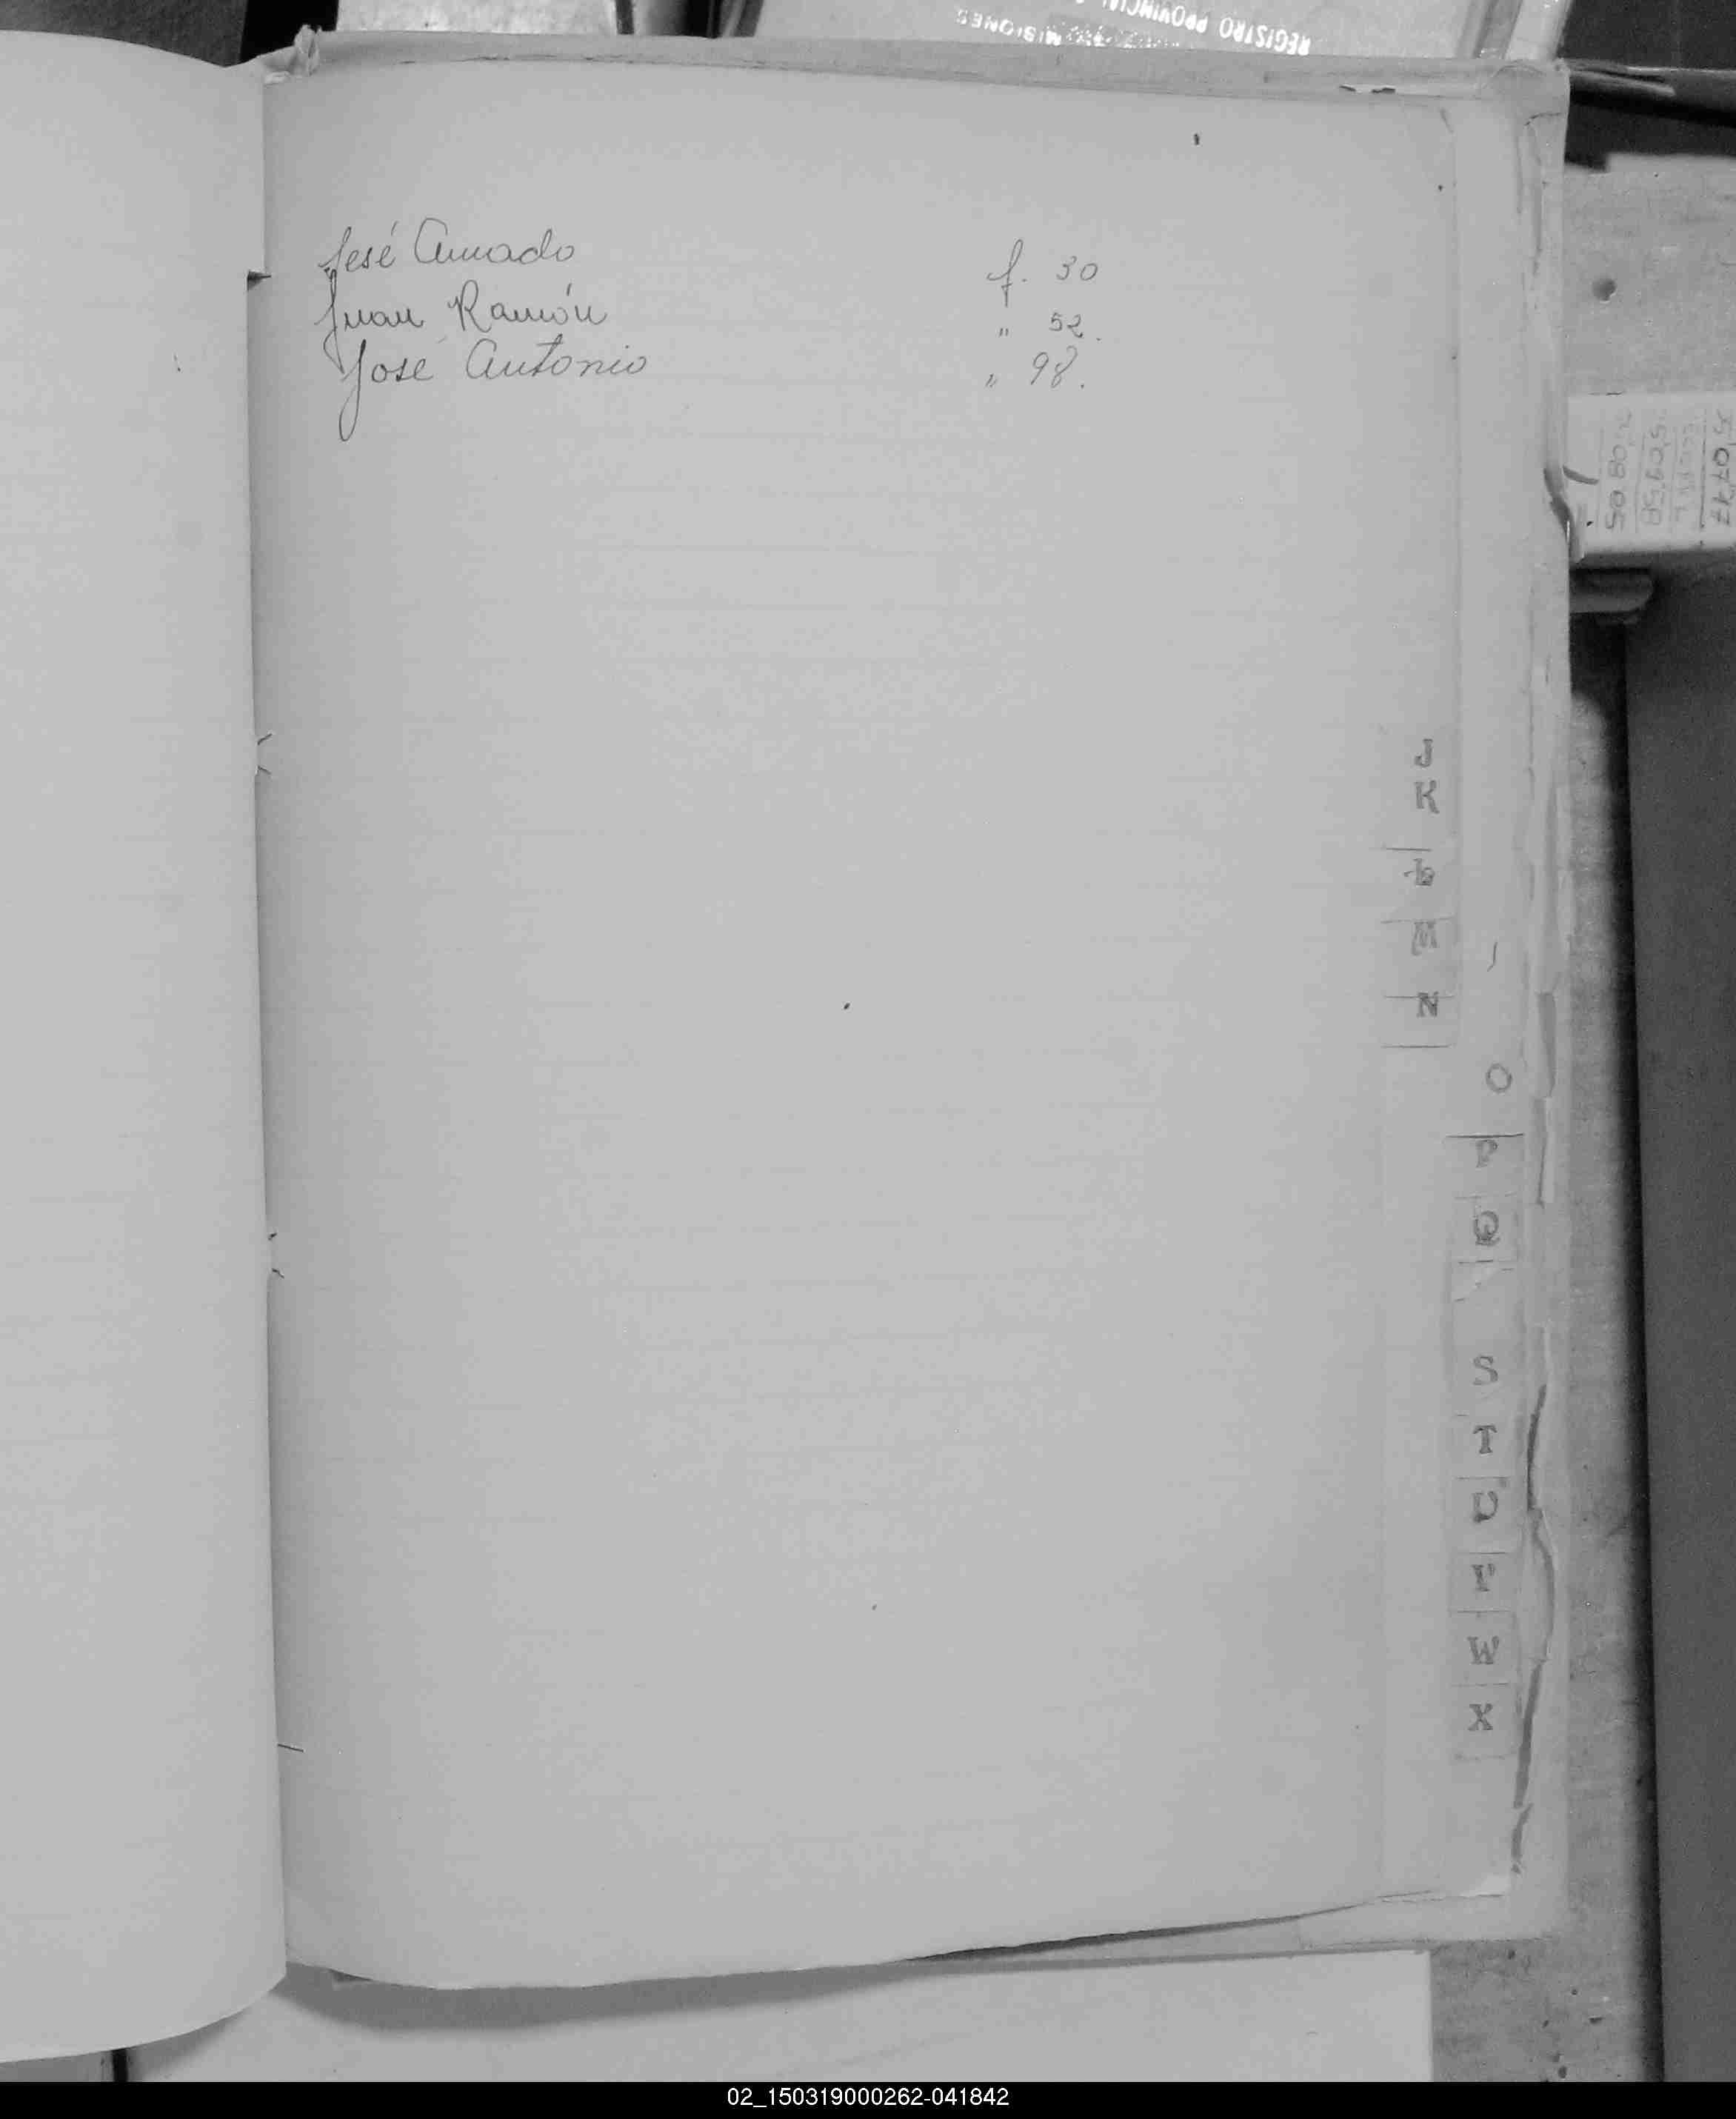 REGISTRO PROVINCIAL
MISIONES
José Amado f. 30
Juan Ramón " 52.
José Antonio " 98.
J
K
L
M
N
O
P
Q
S
T
U
W
X
02_150319000262-041842